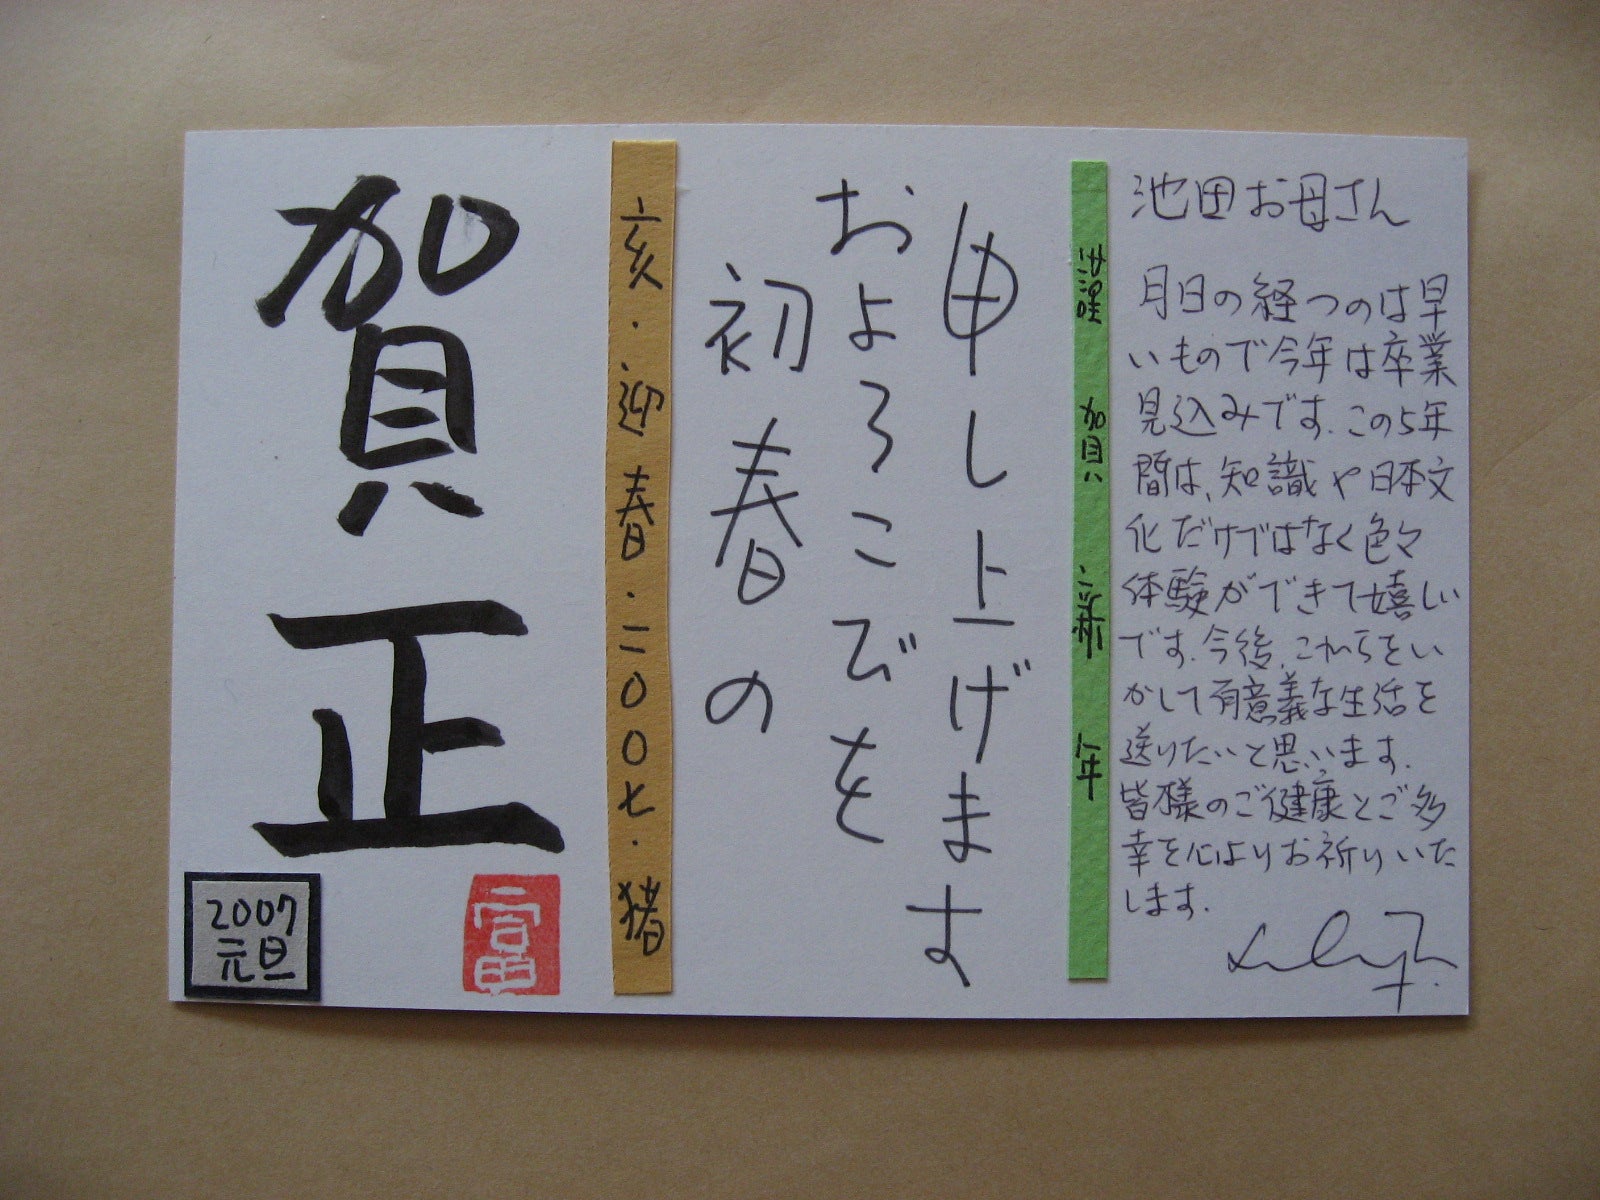 賀正
2007
元旦
富田
亥・迎春・二〇〇七・猪
初春の
およろこびを
申し上げます
謹賀新年
池田お母さん
月日の経つのは早
いもので今年は卒業
見込みです.この5年
間は、知識や日本文
化だけではなく色々
体験ができて嬉しい
です.今後、これらをい
かして有意義な生活を
送りたいと思います.
皆様のご健康とご多
幸を心よりお祈りいた
します.